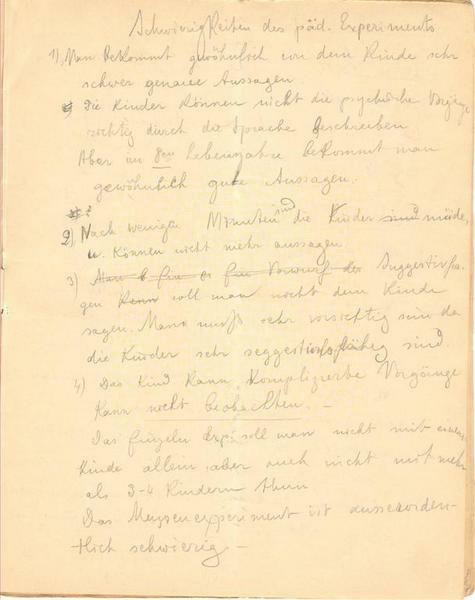 Schwierigkeiten des päd. Experiments
1) Man bekommt gewöhnlich von dem Kinde sehr
schwer genaue Aussagen.
Die Kinder können nicht die psychische Vorgänge
richtig durch die Sprache beschreiben
Aber im 8en Lebensjahre bekommt man
gewöhnlich gute Aussagen.
2) Nach wenigen Minuten sind die Kinder sind müde,
u. können nicht mehr aussagen
3) Suggestivfra-
gen soll man nicht dem Kinde
sagen. Mann muß sehr vorsichtig sein da
die Kinder sehr suggestivfähig sind.
4) Das Kind kann komplizierte Vorgänge
kann nicht beobachten. –
Das soll man nicht mit einem
Kinde allein, aber auch nicht mit mehr
als 3-4 Kindern thun
Das experiment ist ausserorden-
tlich schwierig –